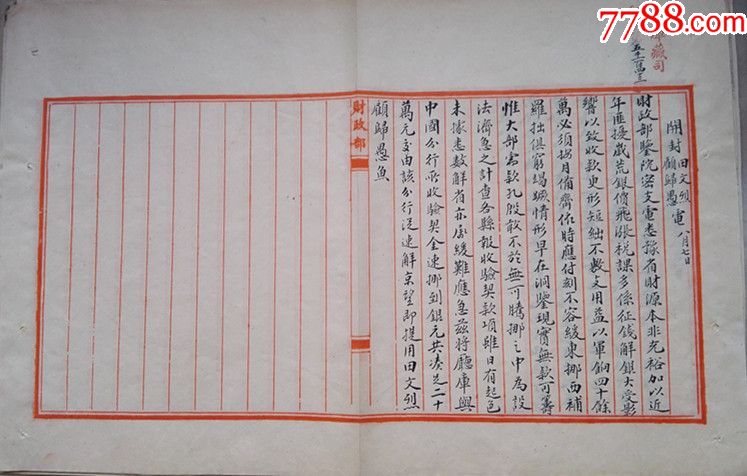 7788.com
庫藏司
五千一百四三
開封田文烈 電 八月七日
顧歸愚
財政部鑒院密支電悉豫省財源本非充裕加以近
年匪擾歲荒銀價飛漲稅課多係征錢解銀大受影
響以致收款更形短絀不敷支用益以軍餉四十餘
萬必須按月備齊依時應付刻不容緩東挪西補
羅掘俱窮竭蹶情形早在洞鑒現實無款可籌
惟大部需款孔殷敢不於無可騰挪之中為設
法濟急之計查各縣報收驗契款項雖日有起色
未據悉數解省亦屬緩難應急茲將廳庫與
中國分行所收驗契金速挪到銀元共湊足二十
萬元交由該分行迅速解京望即提用田文烈
顧歸愚魚
財政部